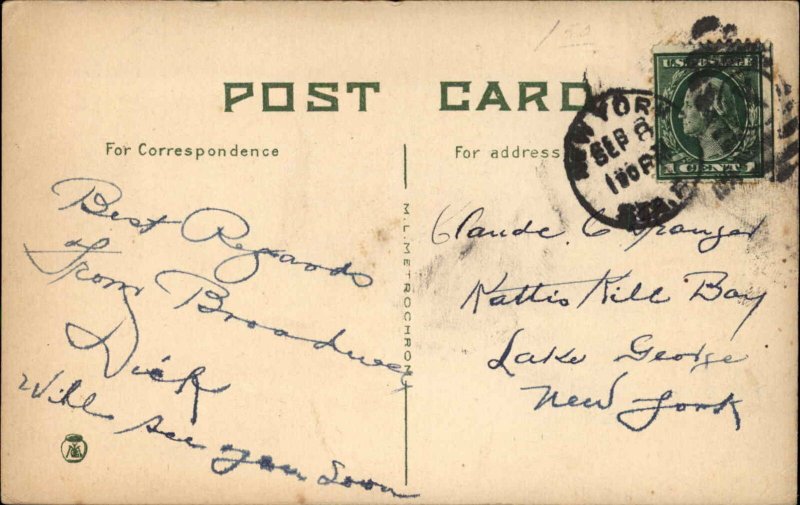 POST CARD
For Correspondence
For address
U.S. POSTAGE
1 CENT 1
NEW YORK
SEP 8
M.L. METROCHROME
Best Regards
from Broadway
Dick
Will see you soon
Claude. C Granger
Kattis Kill Bay
Lake George
New York